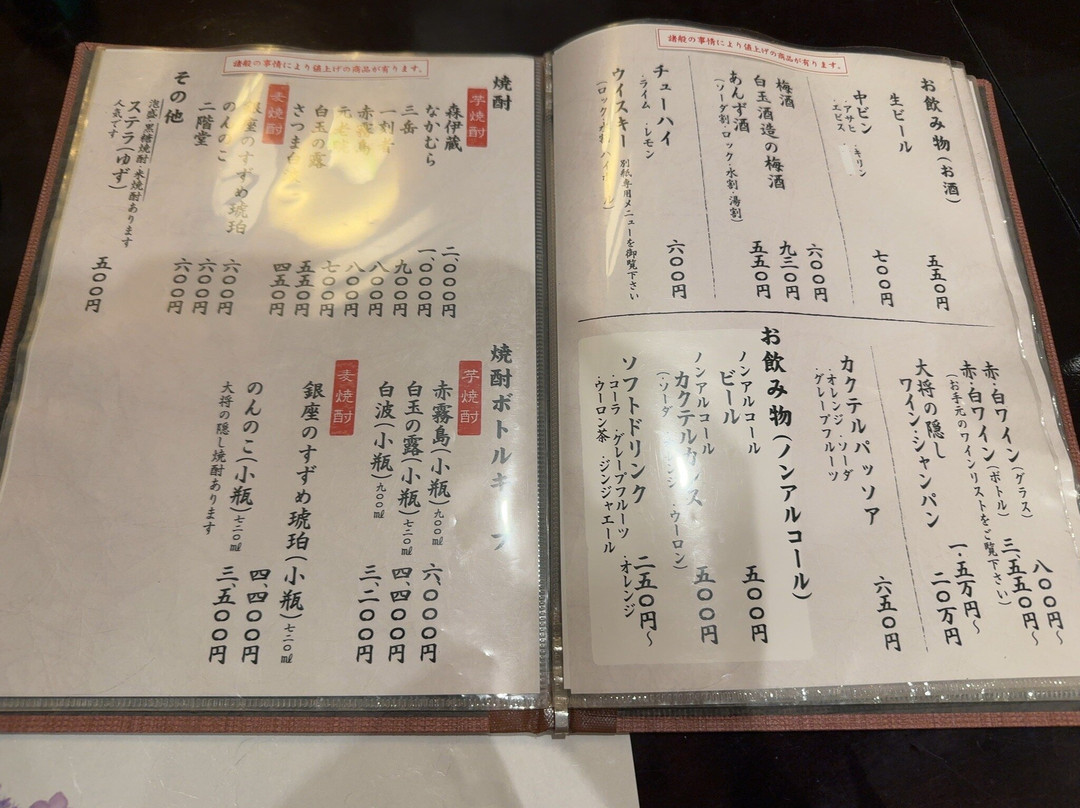 諸般の事情により値上げの商品が有ります。
お飲み物(お酒)
生ビール 五五〇円
中ビン 七〇〇円
・アサヒ ・キリン
・エビス
梅酒 六〇〇円
白玉酒造の梅酒 九三〇円
あんず酒 五五〇円
(ソーダ割・ロック・水割・湯割)
チューハイ 六〇〇円
・ライム ・レモン
ウイスキー 別紙専用メニューを御覧下さい
(ロック
赤・白ワイン(グラス) 八〇〇円~
赤・白ワイン(ボトル) 三、五五〇円~
(お手元のワインリストをご覧下さい)
大将の隠し 一・五万円~
ワイン・シャンパン 二〇万円
カクテルパッソア 六五〇円
・オレンジ ・ソーダ
・グレープフルーツ
お飲み物(ノンアルコール)
ノンアルコール
ビール 五〇〇円
ノンアルコール
カクテル 五〇〇円
(・ソーダ ・ウーロン)
ソフトドリンク 二五〇円~
・コーラ ・グレープフルーツ ・オレンジ
・ウーロン茶 ・ジンジャエール
諸般の事情により値上げの商品が有ります。
焼酎
芋焼酎
森伊蔵 二、〇〇〇円
なかむら 一、〇〇〇円
三岳 九〇〇円
一刻者 八〇〇円
赤霧島 八〇〇円
元老院 七〇〇円
白玉の露 五五〇円
さつま白波 四五〇円
麦焼酎
銀座のすずめ琥珀 六〇〇円
のんのこ 六〇〇円
二階堂 六〇〇円
その他
泡盛・黒糖焼酎・米焼酎あります
ステラ(ゆず) 五〇〇円
人気です
焼酎ボトルキープ
芋焼酎
赤霧島(小瓶)九〇〇㎖ 六、〇〇〇円
白玉の露(小瓶)七二〇㎖ 四、四〇〇円
白波(小瓶)九〇〇㎖ 三、二〇〇円
麦焼酎
銀座のすずめ琥珀(小瓶)七二〇㎖
四、四〇〇円
のんのこ(小瓶)七二〇㎖ 三、五〇〇円
大将の隠し焼酎あります